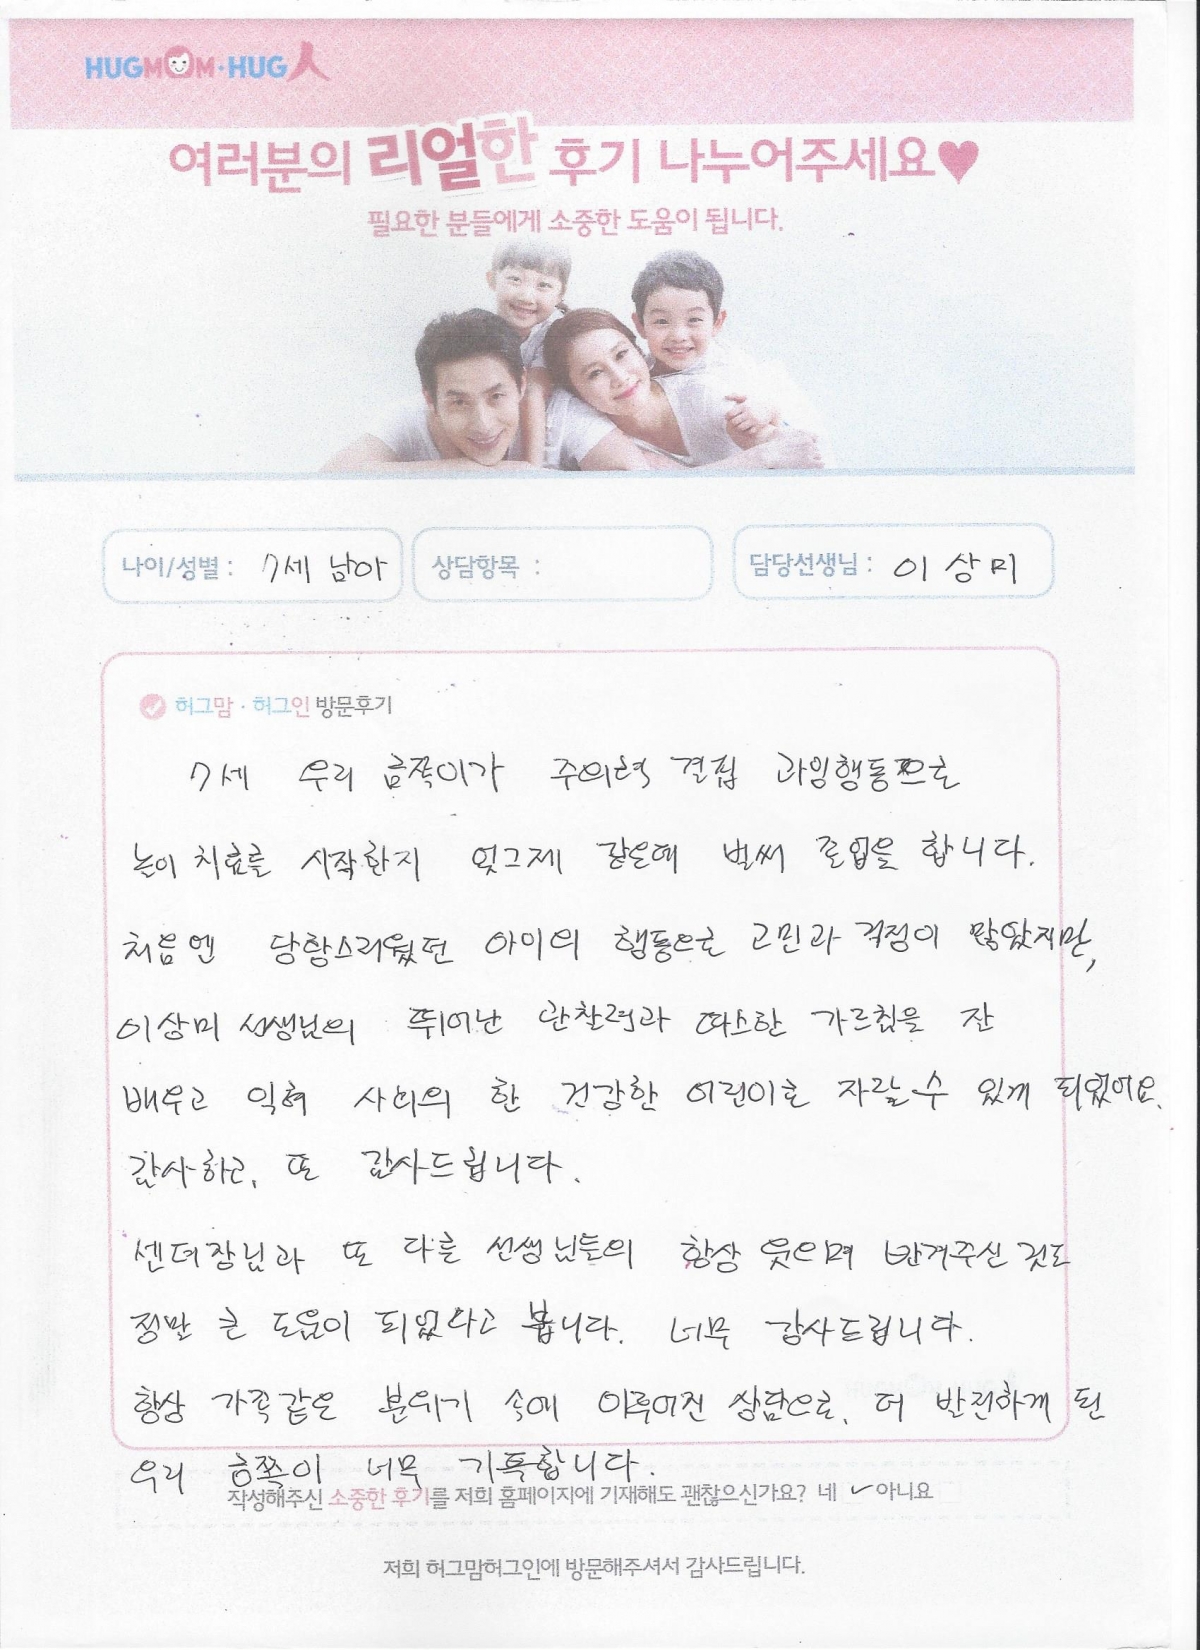 HUGMOM·HUG人
여러분의 리얼한 후기 나누어주세요♥
필요한 분들에게 소중한 도움이 됩니다.
나이/성별 : 7세 남아 상담항목 : 담당선생님 : 이상미
허그맘·허그인 방문후기
7세 우리 금쪽이가 주의력 결핍 과잉행동으로
놀이 치료를 시작한지 엊그제 같은데 벌써 졸업을 합니다.
처음엔 당황스러웠던 아이의 행동으로 고민과 걱정이 많았지만,
이상미 선생님의 뛰어난 관찰력과 따스한 가르침을 잘
배우고 익혀 사회의 한 건강한 어린이로 자랄수 있게 되었어요.
감사하고, 또 감사드립니다.
센터장님과 또 다른 선생님들의 항상 웃으며 반겨주신 것도
정말 큰 도움이 되었다고 봅니다. 너무 감사드립니다.
항상 가족같은 분위기 속에 이루어진 상담으로, 더 발전하게 된
우리 금쪽이 너무 기특합니다.
작성해주신 소중한 후기를 저희 홈페이지에 기재해도 괜찮으신가요? 네 ✓ 아니요
저희 허그맘허그인에 방문해주셔서 감사드립니다.